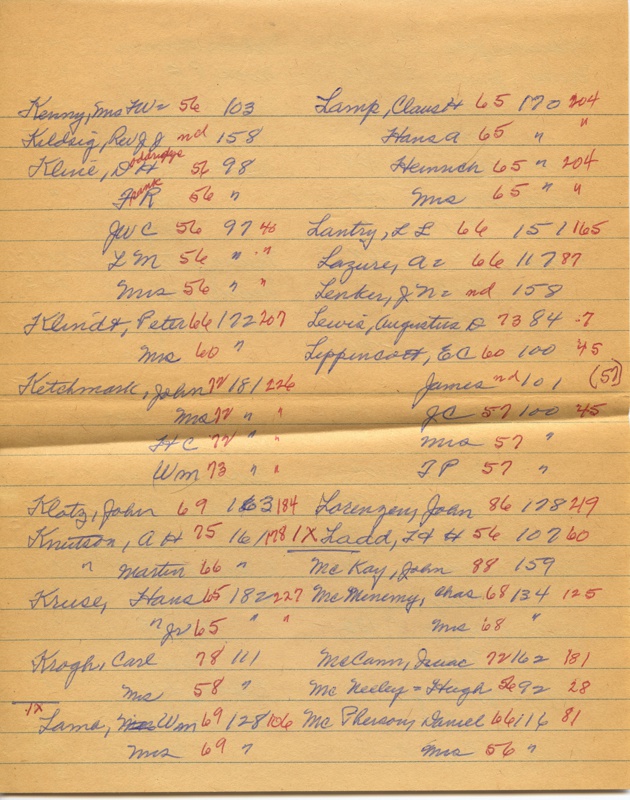 Kenny, Mrs FW= 56 103
Kildsig, Rev JJ nd 158
oddridge
Kline, D H 56 98
Frank R 56 "
JWC 56 97 40
L M 56 " "
Mrs 56 " "
Klindt, Peter 66 172 207
Mrs 60 "
Ketchmark, John 72 181 226
Mrs 72 " "
H C 72 " "
Wm 73 " "
Klotz, John 69 163 184
Knutson, A H 75 161 178
" Martin 66 "
Kruse, Hans 65 182 227
" Jr 65 " "
Krogh, Carl 78 111
Mrs 58 "
1X
Lama, Wm 69 128 106
Mrs 69 "
Lamp, Claus H 65 170 204
Hans A 65 " "
Heinrich 65 " 204
Mrs 65 " "
Lantry, L L 66 151 165
Lazure, A= 66 117 87
Lenker, J N= nd 158
Lewis, Augustus D 73 84 -7
Lippincott, EC 60 100 45
James nd 101 (57)
JC 57 100 45
Mrs 57 "
T P 57 "
Lorenzen, John 86 178 219
1X Ladd, F4 H 56 107 60
McKay, John 88 159
McMinimy, Chas 68 134 125
Mrs 68 "
McCann, Isaac 72 162 181
McNeeley= Hugh 56 92 28
McPherson, Daniel 66 116 81
Mrs 56 "